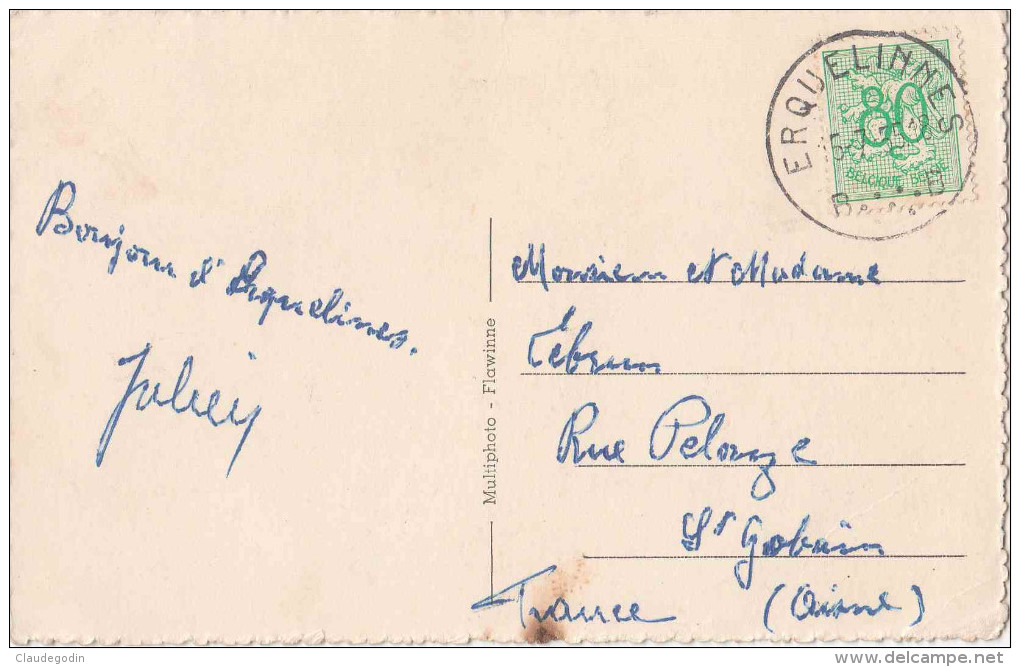 ERQUELINNES
80
BELGIQUE BELGIE
B B
Bonjour d'Erquelinnes.
Monsieur et Madame
Lebrun
Rue Pelouze
St Gobain
France (Aisne)
Multiphoto - Flawinne
Claudegodin
delcampe.net